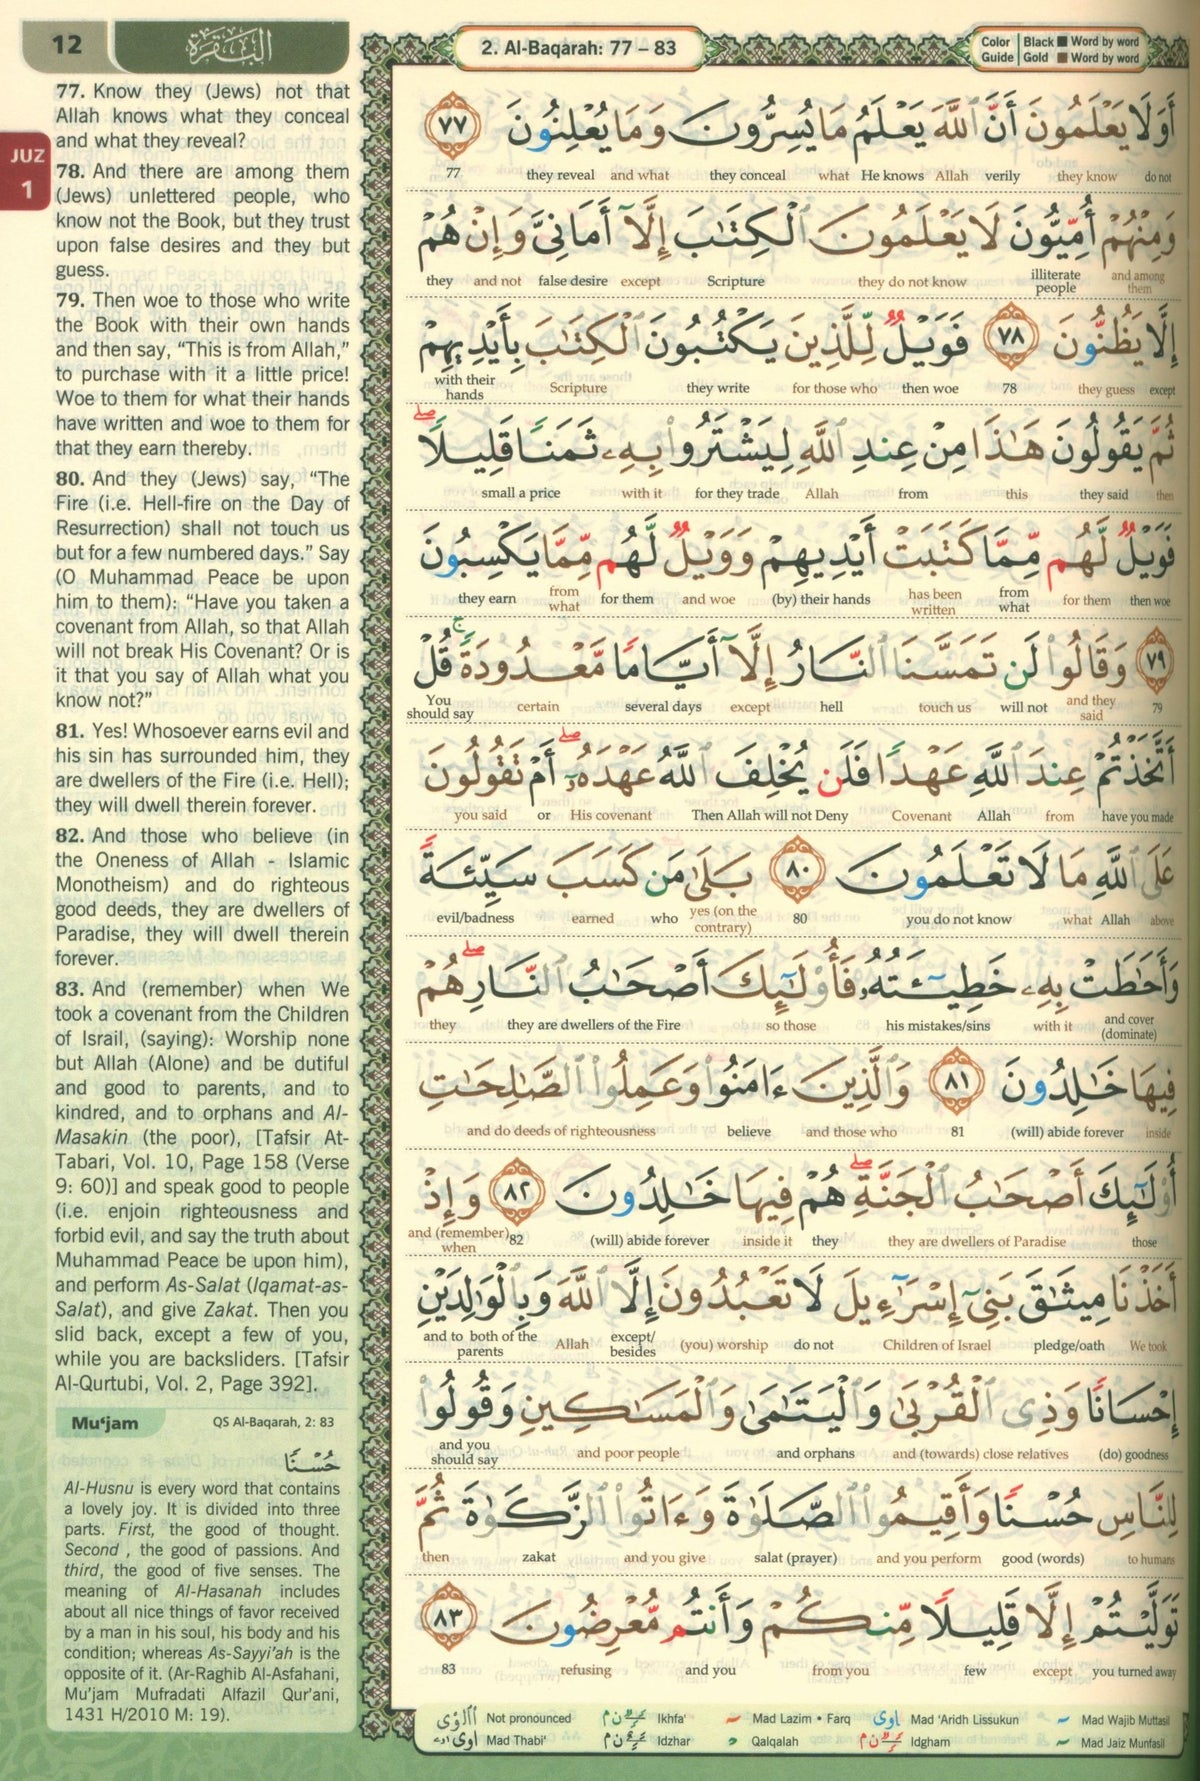 12
البقرة
2. Al-Baqarah: 77 – 83
Color Guide
Black ■ Word by word
Gold ■ Word by word
JUZ
1
77. Know they (Jews) not that
Allah knows what they conceal
and what they reveal?
78. And there are among them
(Jews) unlettered people, who
know not the Book, but they trust
upon false desires and they but
guess.
79. Then woe to those who write
the Book with their own hands
and then say, “This is from Allah,”
to purchase with it a little price!
Woe to them for what their hands
have written and woe to them for
that they earn thereby.
80. And they (Jews) say, “The
Fire (i.e. Hell-fire on the Day of
Resurrection) shall not touch us
but for a few numbered days.” Say
(O Muhammad Peace be upon
him to them): “Have you taken a
covenant from Allah, so that Allah
will not break His Covenant? Or is
it that you say of Allah what you
know not?”
81. Yes! Whosoever earns evil and
his sin has surrounded him, they
are dwellers of the Fire (i.e. Hell);
they will dwell therein forever.
82. And those who believe (in
the Oneness of Allah - Islamic
Monotheism) and do righteous
good deeds, they are dwellers of
Paradise, they will dwell therein
forever.
83. And (remember) when We
took a covenant from the Children
of Israil, (saying): Worship none
but Allah (Alone) and be dutiful
and good to parents, and to
kindred, and to orphans and Al-
Masakin (the poor), [Tafsir At-
Tabari, Vol. 10, Page 158 (Verse
9: 60)] and speak good to people
(i.e. enjoin righteousness and
forbid evil, and say the truth about
Muhammad Peace be upon him),
and perform As-Salat (Iqamat-as-
Salat), and give Zakat. Then you
slid back, except a few of you,
while you are backsliders. [Tafsir
Al-Qurtubi, Vol. 2, Page 392].
Mu‘jam QS Al-Baqarah, 2: 83
حُسْنًا
Al-Husnu is every word that contains
a lovely joy. It is divided into three
parts. First, the good of thought.
Second , the good of passions. And
third, the good of five senses. The
meaning of Al-Hasanah includes
about all nice things of favor received
by a man in his soul, his body and his
condition; whereas As-Sayyi’ah is the
opposite of it. (Ar-Raghib Al-Asfahani,
Mu’jam Mufradati Alfazil Qur’ani,
1431 H/2010 M: 19).
أَوَلَا يَعْلَمُونَ أَنَّ ٱللَّهَ يَعْلَمُ مَا يُسِرُّونَ وَمَا يُعْلِنُونَ ٧٧
77 they reveal and what they conceal what He knows Allah verily they know do not
وَمِنْهُمْ أُمِّيُّونَ لَا يَعْلَمُونَ ٱلْكِتَـٰبَ إِلَّآ أَمَانِىَّ وَإِنْ هُمْ
they and not false desire except Scripture they do not know illiterate people and among them
إِلَّا يَظُنُّونَ ٧٨ فَوَيْلٌ لِّلَّذِينَ يَكْتُبُونَ ٱلْكِتَـٰبَ بِأَيْدِيهِمْ
with their hands Scripture they write for those who then woe 78 they guess except
ثُمَّ يَقُولُونَ هَـٰذَا مِنْ عِندِ ٱللَّهِ لِيَشْتَرُوا۟ بِهِۦ ثَمَنًا قَلِيلًا ۖ
small a price with it for they trade Allah from this they said then
فَوَيْلٌ لَّهُم مِّمَّا كَتَبَتْ أَيْدِيهِمْ وَوَيْلٌ لَّهُم مِّمَّا يَكْسِبُونَ
they earn from what for them and woe (by) their hands has been written from what for them then woe
٧٩ وَقَالُوا۟ لَن تَمَسَّنَا ٱلنَّارُ إِلَّآ أَيَّامًا مَّعْدُودَةً ۚ قُلْ
You should say certain several days except hell touch us will not and they said 79
أَتَّخَذْتُمْ عِندَ ٱللَّهِ عَهْدًا فَلَن يُخْلِفَ ٱللَّهُ عَهْدَهُۥٓ ۖ أَمْ تَقُولُونَ
you said or His covenant Then Allah will not Deny Covenant Allah from have you made
عَلَى ٱللَّهِ مَا لَا تَعْلَمُونَ ٨٠ بَلَىٰ مَن كَسَبَ سَيِّئَةً
evil/badness earned who yes (on the contrary) 80 you do not know what Allah above
وَأَحَـٰطَتْ بِهِۦ خَطِيٓـَٔتُهُۥ فَأُو۟لَـٰٓئِكَ أَصْحَـٰبُ ٱلنَّارِ ۖ هُمْ
they they are dwellers of the Fire so those his mistakes/sins with it and cover (dominate)
فِيهَا خَـٰلِدُونَ ٨١ وَٱلَّذِينَ ءَامَنُوا۟ وَعَمِلُوا۟ ٱلصَّـٰلِحَـٰتِ
and do deeds of righteousness believe and those who 81 (will) abide forever inside
أُو۟لَـٰٓئِكَ أَصْحَـٰبُ ٱلْجَنَّةِ ۖ هُمْ فِيهَا خَـٰلِدُونَ ٨٢ وَإِذْ
and (remember) when 82 (will) abide forever inside it they they are dwellers of Paradise those
أَخَذْنَا مِيثَـٰقَ بَنِىٓ إِسْرَٰٓءِيلَ لَا تَعْبُدُونَ إِلَّا ٱللَّهَ وَبِٱلْوَٰلِدَيْنِ
and to both of the parents Allah except/ besides (you) worship do not Children of Israel pledge/oath We took
إِحْسَانًا وَذِى ٱلْقُرْبَىٰ وَٱلْيَتَـٰمَىٰ وَٱلْمَسَـٰكِينِ وَقُولُوا۟
and you should say and poor people and orphans and (towards) close relatives (do) goodness
لِلنَّاسِ حُسْنًا وَأَقِيمُوا۟ ٱلصَّلَوٰةَ وَءَاتُوا۟ ٱلزَّكَوٰةَ ثُمَّ
then zakat and you give salat (prayer) and you perform good (words) to humans
تَوَلَّيْتُمْ إِلَّا قَلِيلًا مِّنكُمْ وَأَنتُم مُّعْرِضُونَ ٨٣
83 refusing and you from you few except you turned away
Not pronounced Ikhfa' Mad Lazim • Farq Mad 'Aridh Lissukun Mad Wajib Muttasil
Mad Thabi' Idzhar Qalqalah Idgham Mad Jaiz Munfasil